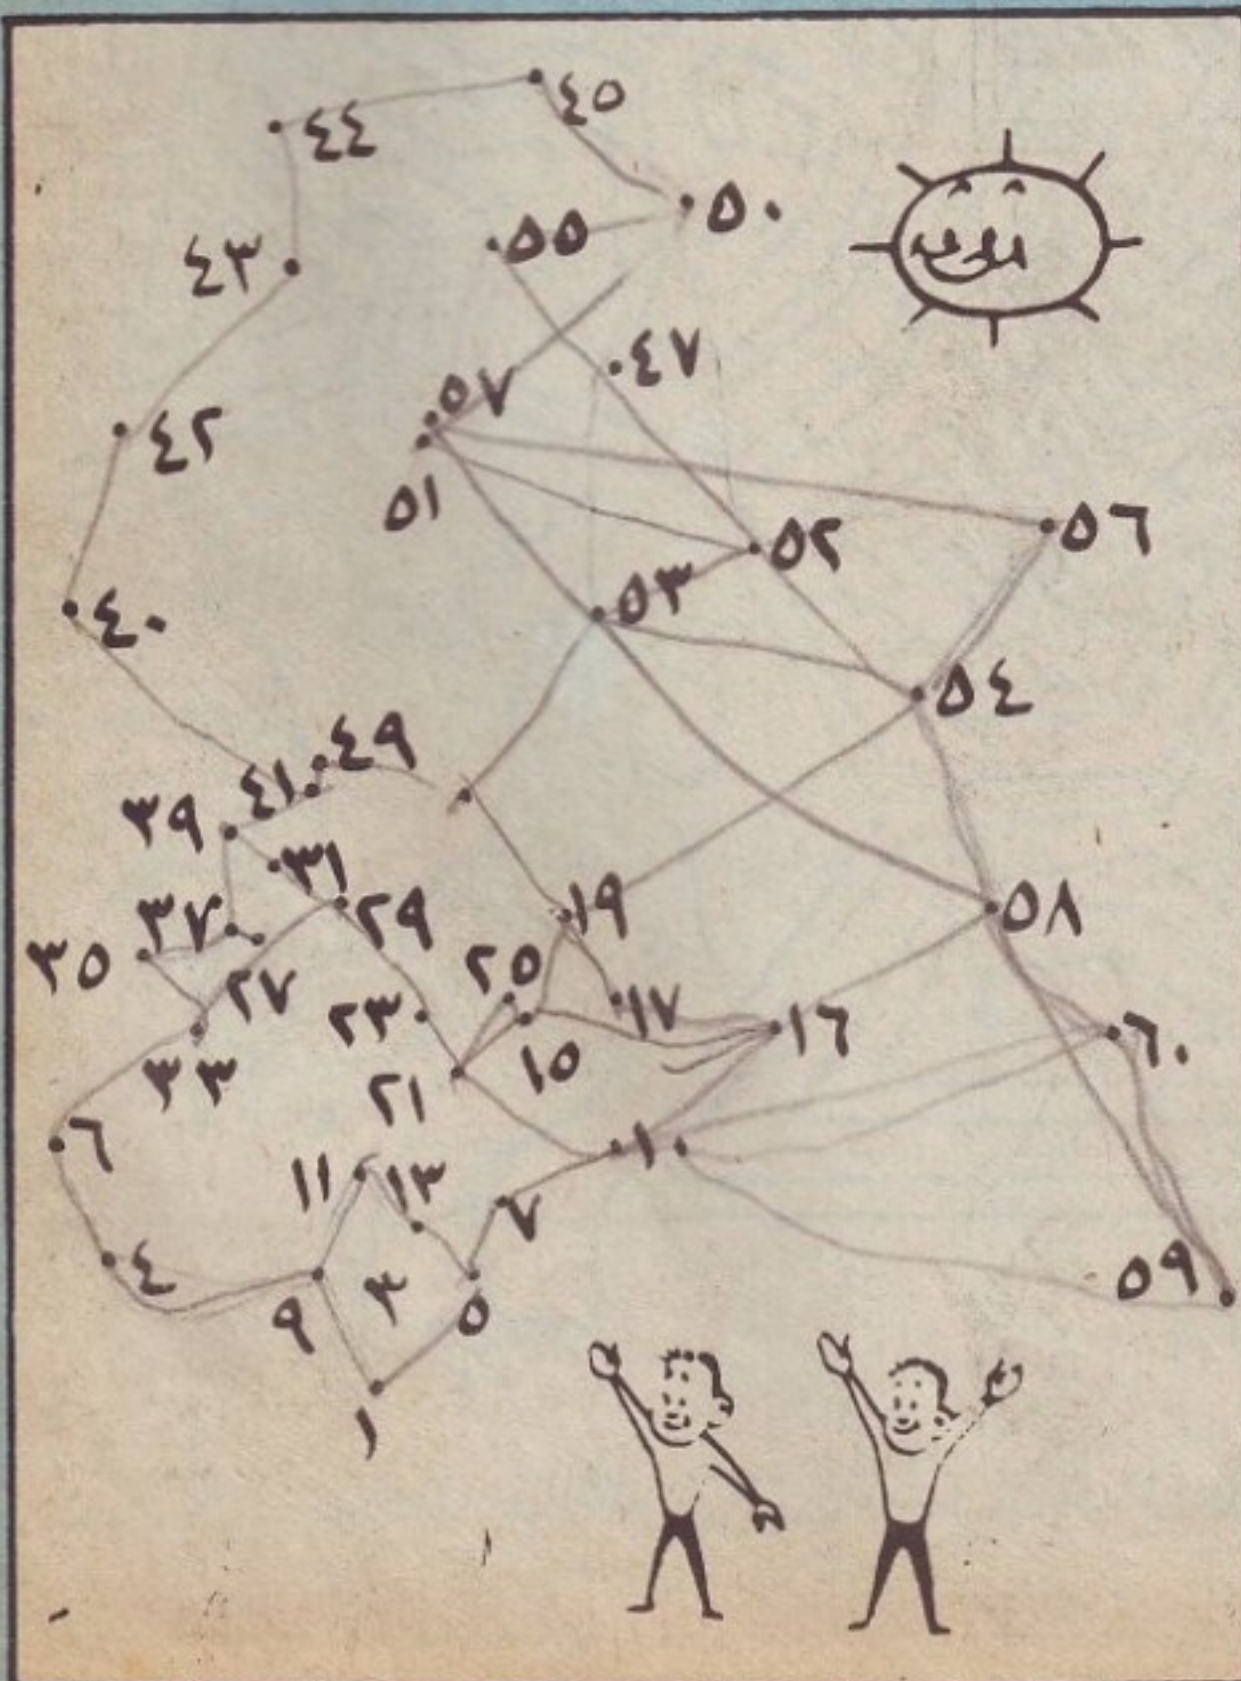 ٤٥
٤٤
٥٠
٥٥
٤٣
٤٧
٥٧
٤٢
٥١
٥٦
٥٢
٥٣
٤٠
٥٤
٤٩
٤١
٣٩
٣١
١٩
٢٩
٥٨
٣٧
٣٥
٢٥
٢٧
٢٣
١٧
١٦
٦٠
١٥
٣٣
٢١
٦
١٠
١١
١٣
٧
٤
٣
٥٩
٩
٥
١